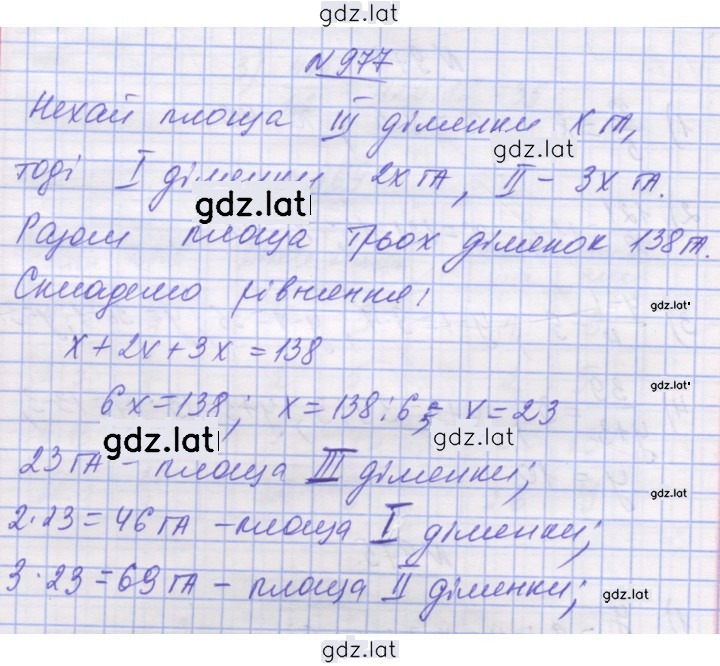 gdz.lat
N 977
gdz.lat
Нехай площа III ділянки х га,
gdz.lat
тоді I ділянки 2х га, II – 3х га.
gdz.lat
Разом площа трьох ділянок 138 га.
Складемо рівняння:
gdz.lat
х+2х+3х=138
gdz.lat
6х=138; х=138:6; х=23
gdz.lat gdz.lat
23 га – площа III ділянки;
gdz.lat
2·23=46 га – площа I ділянки;
gdz.lat
3·23=69 га – площа II ділянки;
gdz.lat
gdz.lat